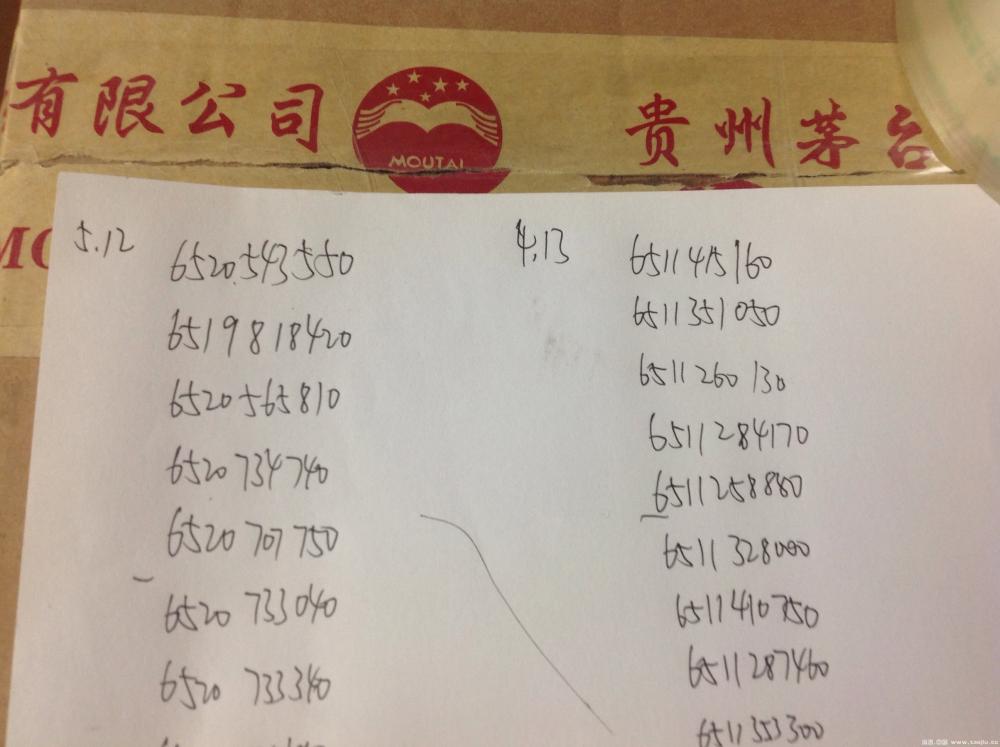 有限公司
MOUTAI
贵州茅台
5.12
6520543550
6519818420
6520565810
6520 734740
6520 707 750
6520 733040
6520 733340
4.13
6511 415 160
6511351050
6511 260 130
6511 284170
6511258880
6511 328000
6511410750
6511287460
6511353300